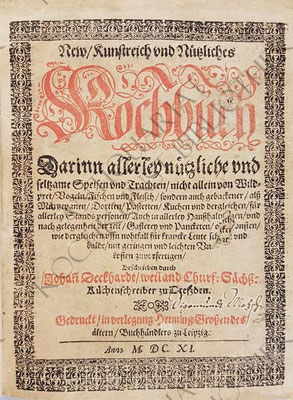 New/ Kunstreich vnd Nützliches
Kochbuch
Darinn allerley nützliche vnd
seltzame Speisen vnd Trachten/ nicht allein von Wild-
pret/ Vogeln/ Fischen vnd Fleisch/ sondern auch gebackener/ als
Martzepanen/ Dorten/ Pasteten/ Kuchen vnd dergleichen/ für
allerley Stands personen/ Auch in allerley Haußhaltungen/ vnd
nach gelegenheit der zeit/ Gastereyen vnd Pancketen/
wie dergleichen offt notdfall für krancke Leute
bilde/ mit geringen vnd leichten Vn-
kosten zuverfertigen/
Beschrieben durch
Johañ Deckhardt/ weiland Churf: Sächß:
Küchenschreiber zu Dreßden.
Gedruckt/ in verlegung Henning Großen des
ältern/ Buchhändlers zu Leipzig.
Anno M. DC. XI.